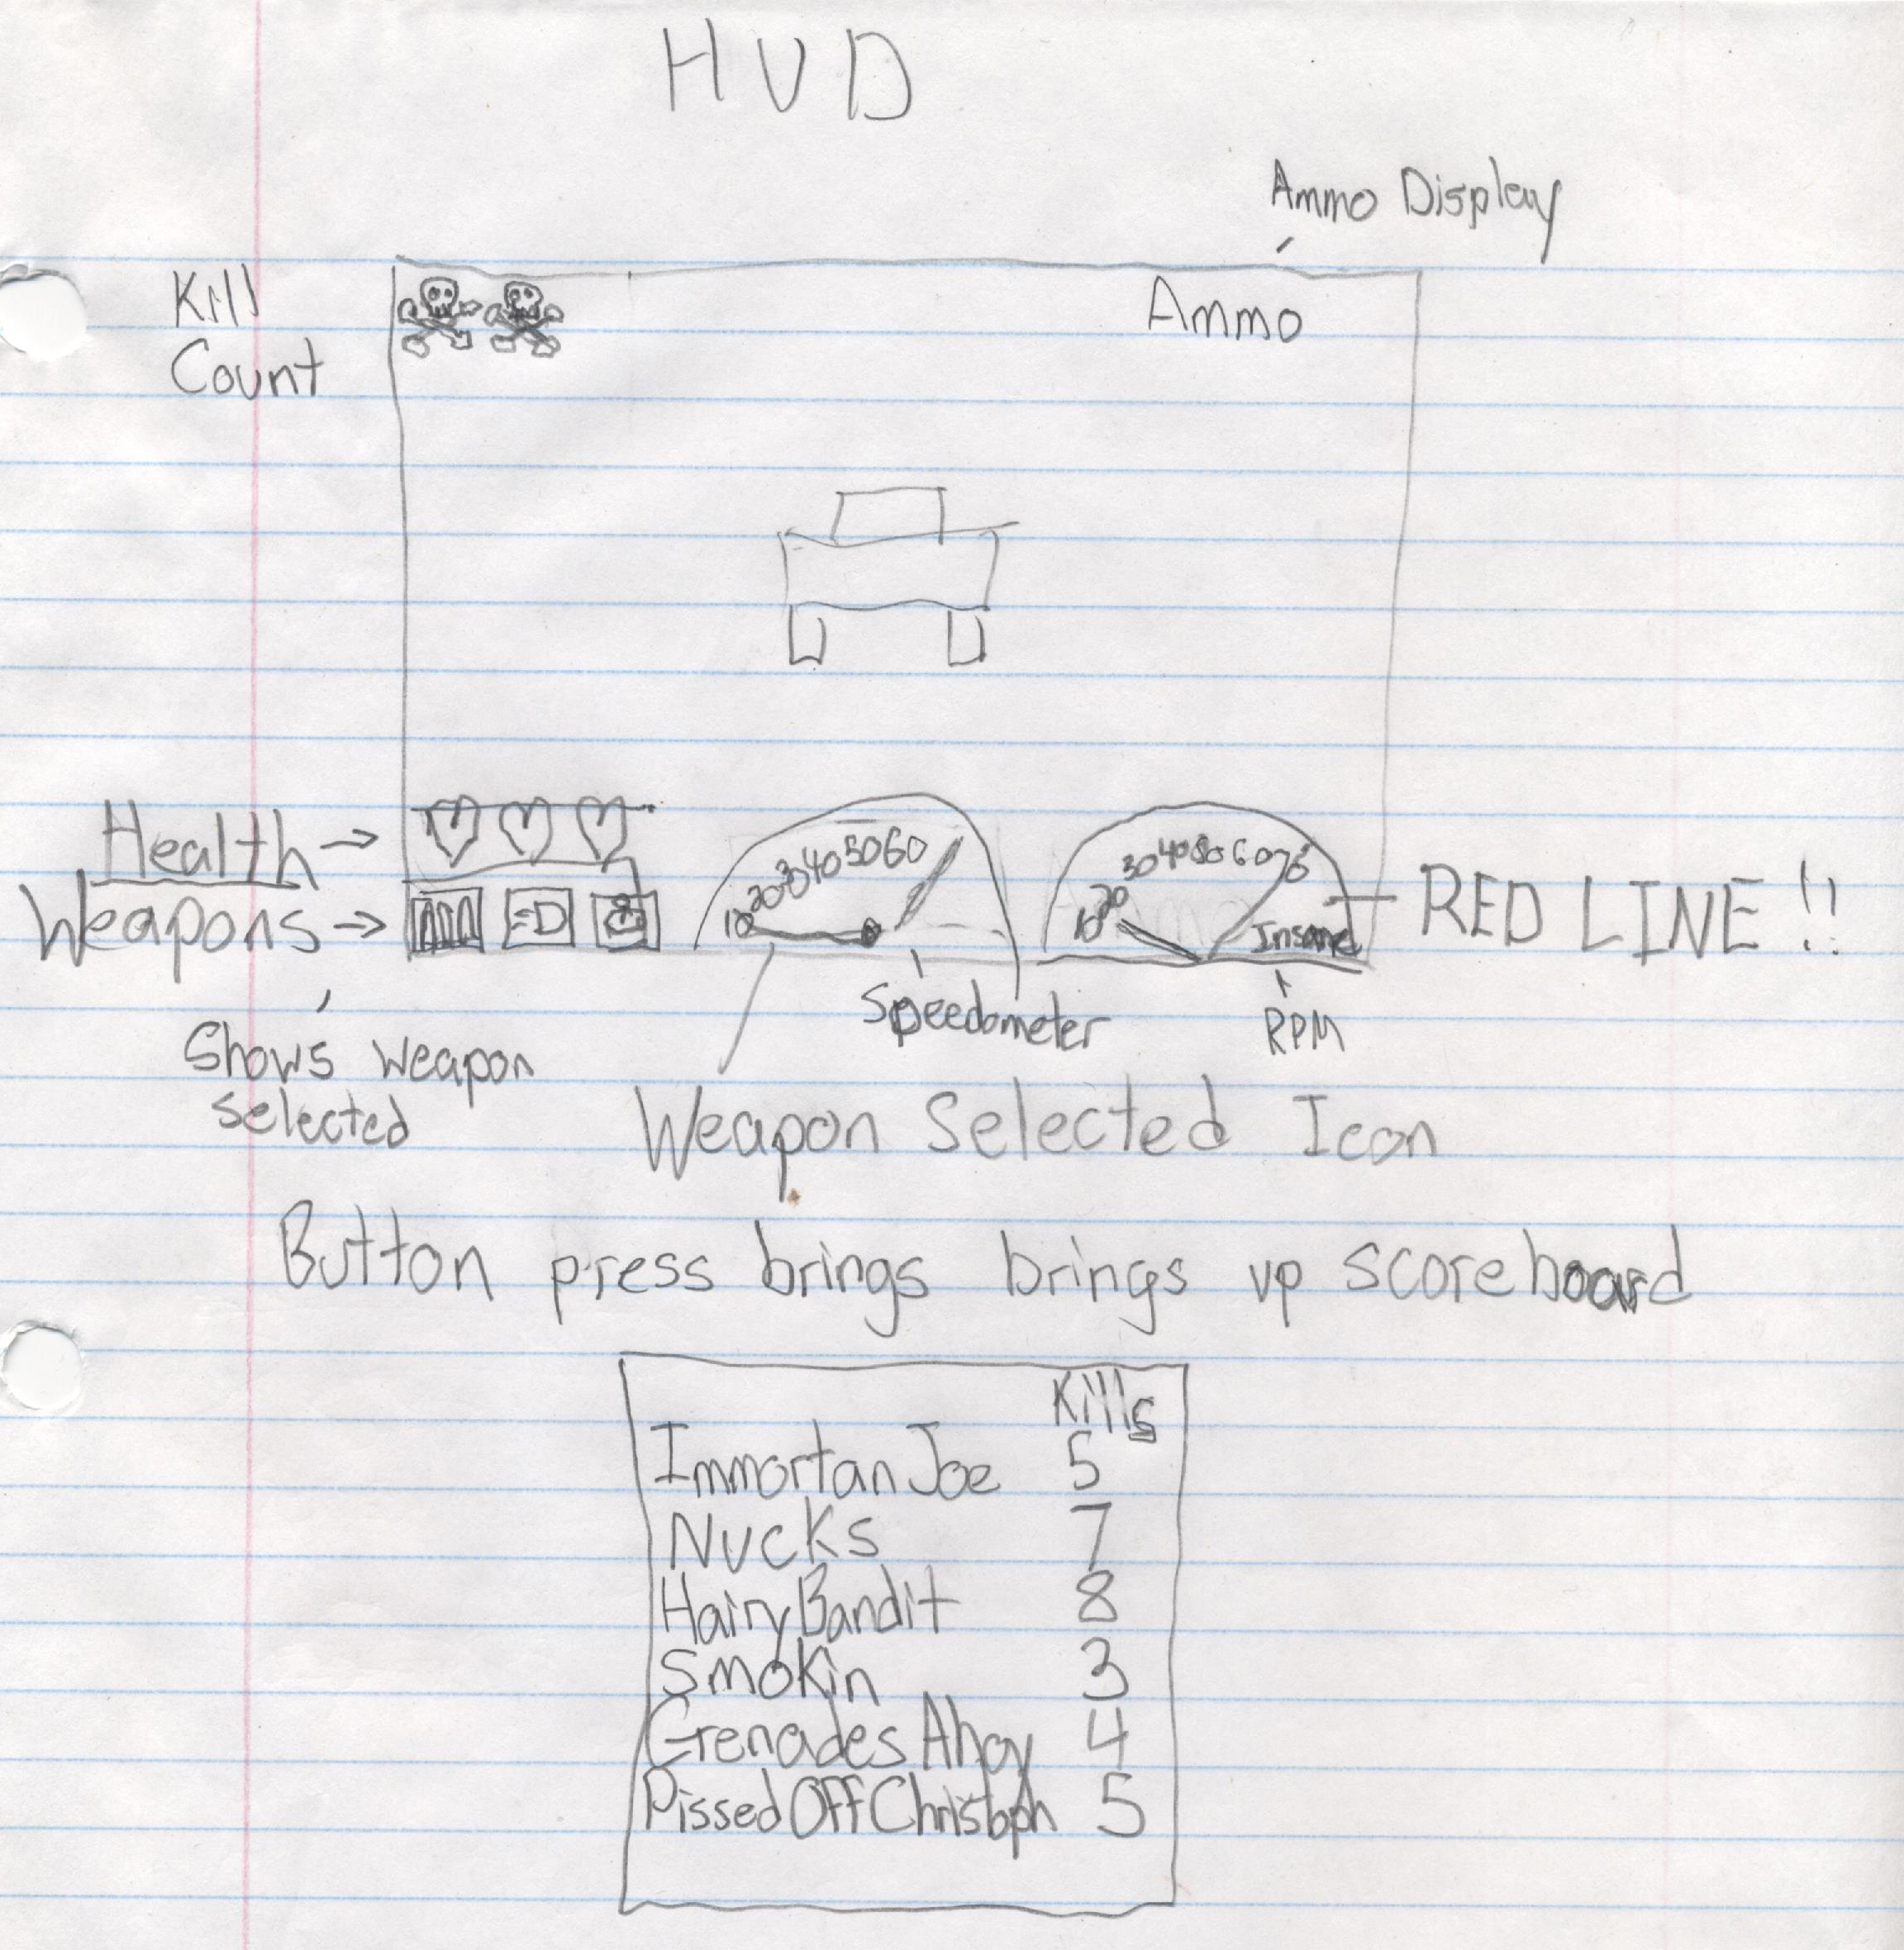 HUD
Ammo Display
Kill
Count
Ammo
Health
Weapons
10 20 30 40 50 60
10 20 30 40 50 60 70
Insane
RED LINE !!
Speedometer
RPM
Shows weapon
selected
Weapon Selected Icon
Button press brings brings up scoreboard
Kills
Immortan Joe 5
Nucks 7
Hairy Bandit 8
Smokin 3
Grenades Ahoy 4
Pissed Off Christoph 5